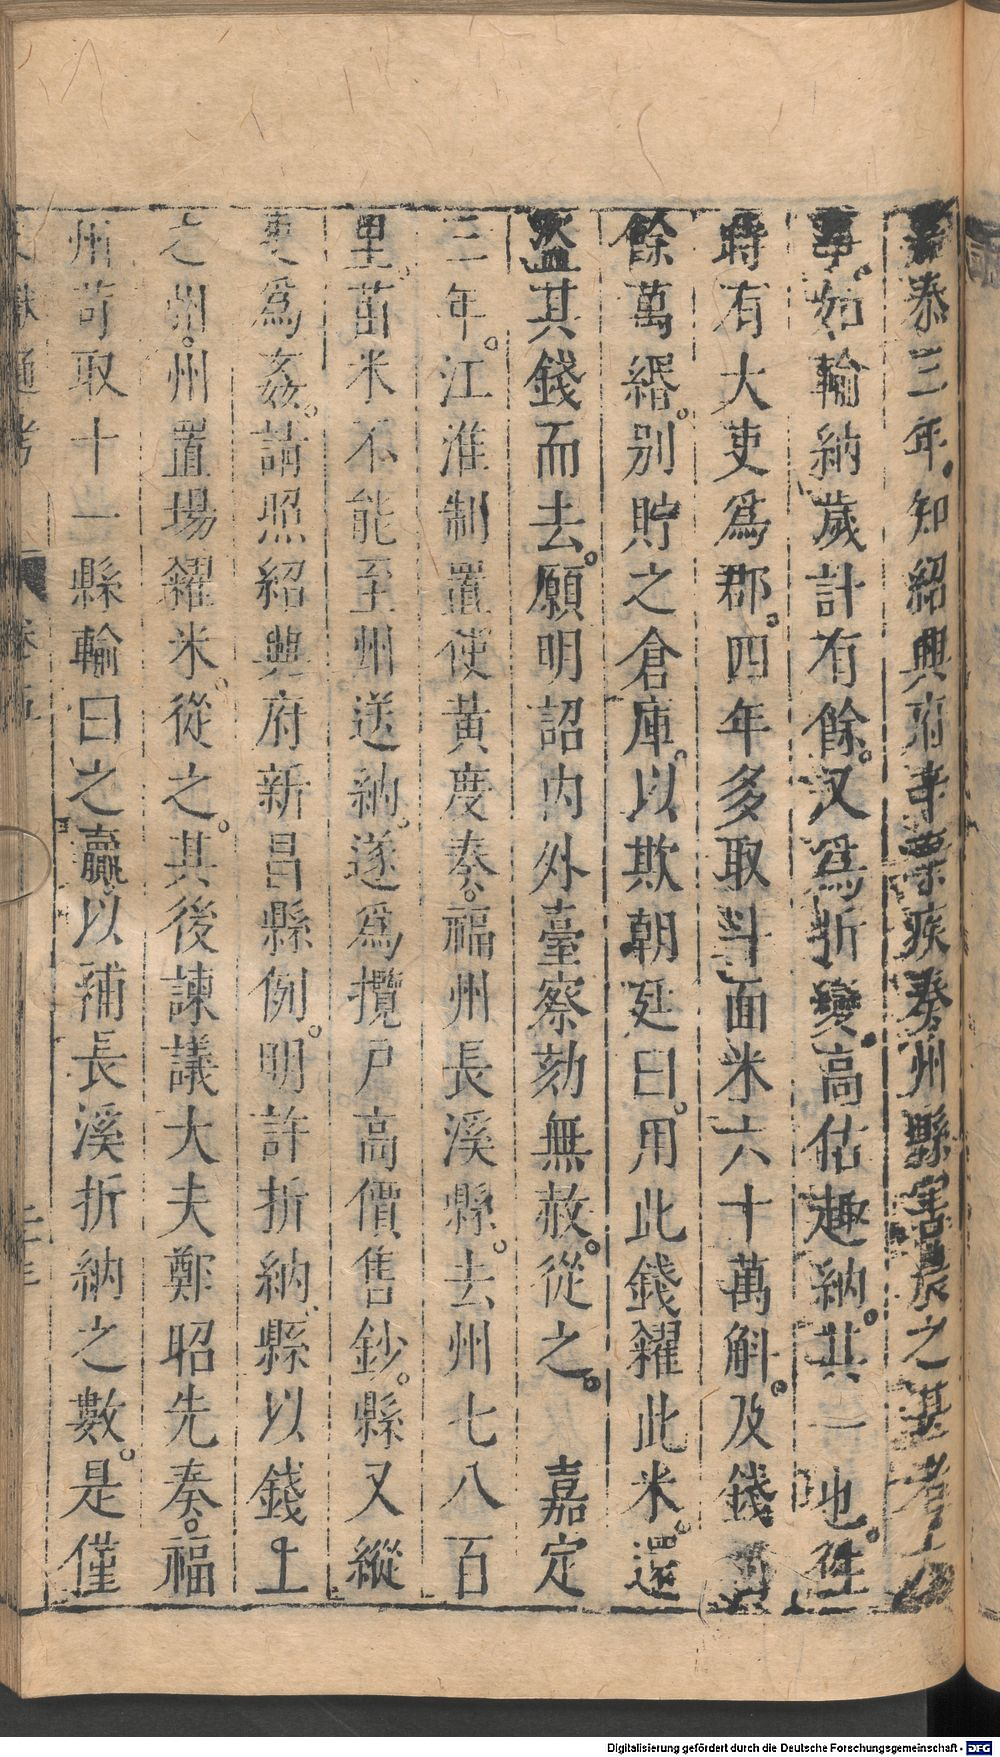 嘉泰三年知紹興府辛棄疾奏州縣害農之甚者六
事如輸納歲計有餘又爲折變高估趣納其一也往
時有大吏爲郡四年多取斗面米六十萬斛及錢百
餘萬緡别貯之倉庫以欺朝廷曰用此錢糴此米還
盜其錢而去願明詔内外臺察劾無赦從之 嘉定
三年江淮制置使黃度奏福州長溪縣去州七八百
里苗米不能至州送納遂爲攬戸高價售鈔縣又縱
吏爲姦請照紹興府新昌縣例明許折納縣以錢上
之州州置場糴米從之其後諫議大夫鄭昭先奏福
州苛取十一縣輸曰之贏以補長溪折納之數是僅
文獻通考
Digitalisierung gefördert durch die Deutsche Forschungsgemeinschaft - DFG